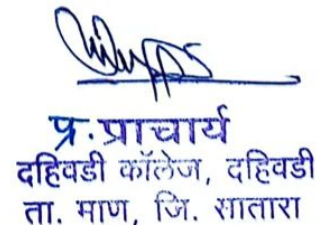 प्र.प्राचार्य
दहिवडी कॉलेज, दहिवडी
ता. माण, जि. सातारा